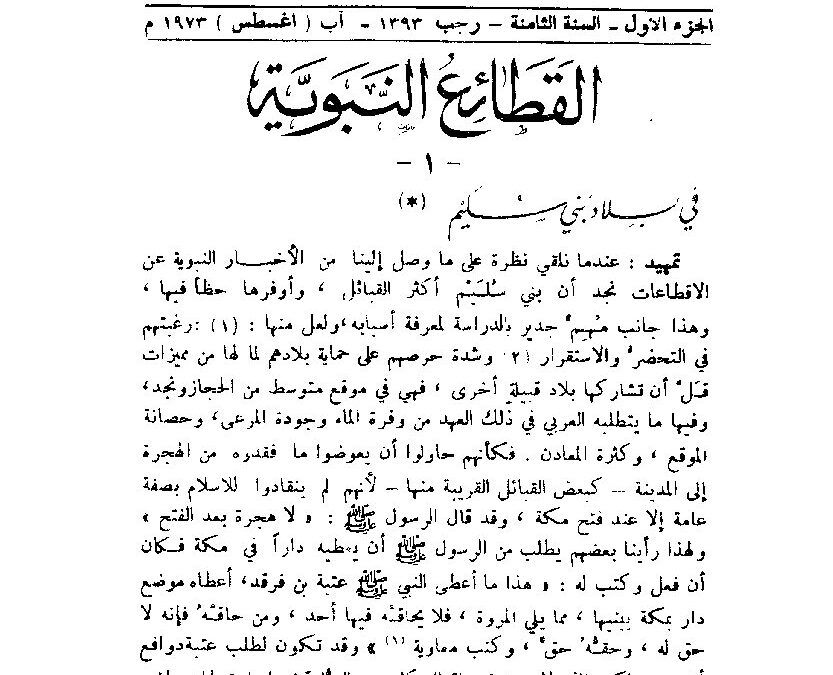 الجزء الاول - السنة الثامنة - رجب ١٣٩٣ - آب ( اغسطس ) ١٩٧٣ م
القَطَائِعُ النَّبَوِيَّة
- ١ -
في بلاد بني سُلَيْم (*)
تمهيد : عندما نلقي نظرة على ما وصل إلينا من الأخبار النبوية عن
الاقطاعات نجد أن بني سُلَيْم أكثر القبائل ، وأوفرها حظاً فيها ،
وهذا جانب مُهِمٌ جدير بالدراسة لمعرفة أسبابه، ولعل منها : (١) : رغبتهم
في التحضر والاستقرار (٢) وشدة حرصهم على حماية بلادهم لما لها من مميزات
قَلَّ أن تشاركها بلاد قبيلةٍ أخرى ، فهي في موقع متوسط من الحجاز ونجد،
وفيها ما يتطلبه العربي في ذلك العهد من وفرة الماء وجودة المرعى، وحصانة
الموقع ، وكثرة المعادن . فكأنهم حاولوا أن يعوضوا ما فقدره من الهجرة
إلى المدينة – كبعض القبائل القريبة منها – لأنهم لم ينقادوا للاسلام بصفة
عامة إلا عند فتح مكة ، وقد قال الرسول ﷺ : « لا هجرة بعد الفتح »
ولهذا رأينا بعضهم يطلب من الرسول ﷺ أن يعطيه داراً في مكة فكان
أن فعل وكتب له : « هذا ما أعطى النبي ﷺ عتبة بن فرقد، أعطاه موضع
دار بمكة يبنيها ، مما يلي المروة ، فلا يحاقّه فيها أحد ، ومن حاقّهُ فإنه لا
حق له ، وحقُّهُ حقٌ ، وكتب معاوية (١) » وقد تكون لطلب عتبة دوافع